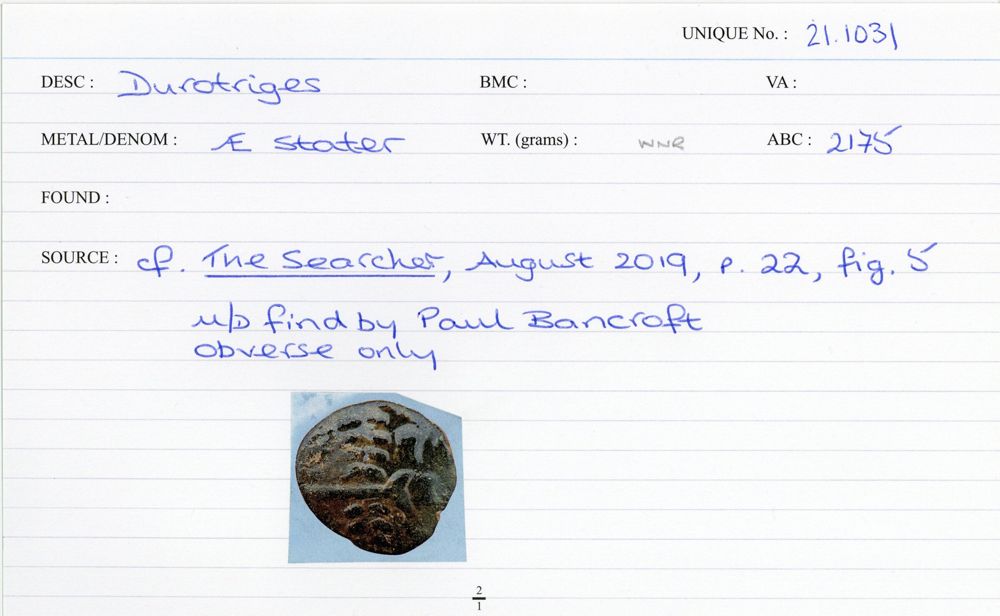 UNIQUE No. : 21.1031
DESC : Durotriges BMC : VA :
METAL/DENOM : Æ stater WT. (grams) : WNR ABC : 2175
FOUND :
SOURCE : cf. The Searcher, August 2019, p. 22, fig. 5
m/D find by Paul Bancroft
obverse only
2
1